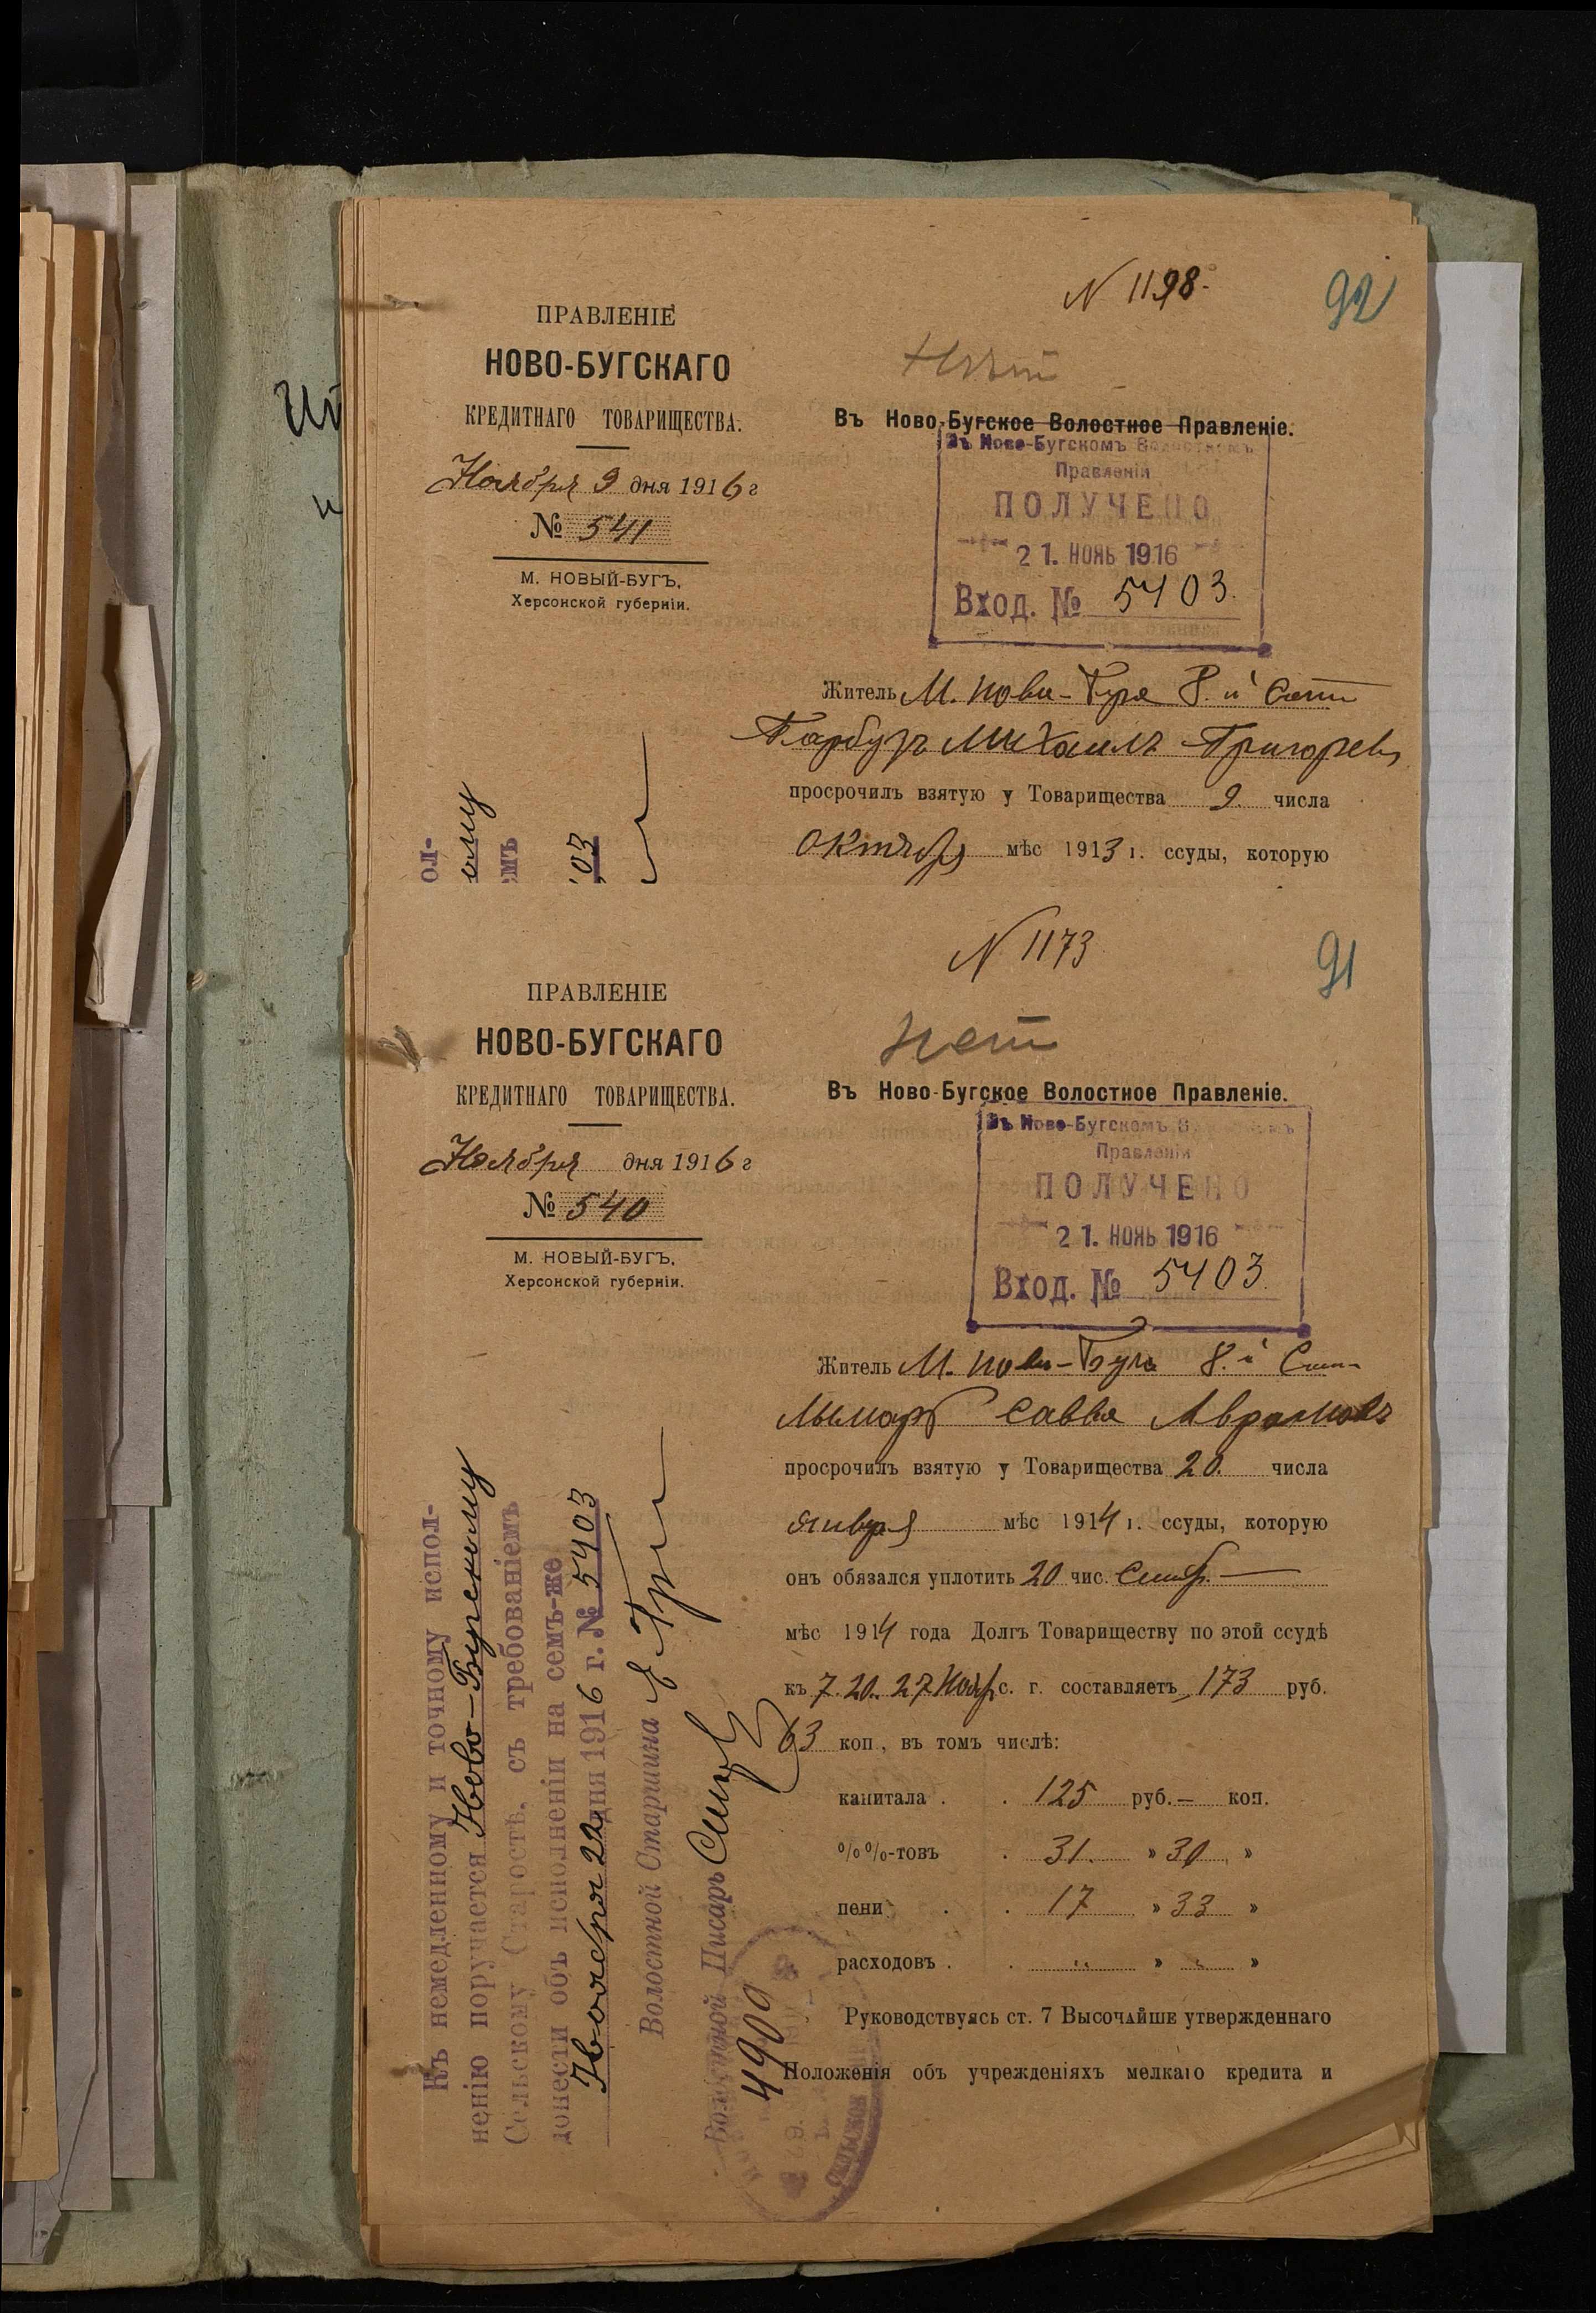 N 1198.
92
ПРАВЛЕНІЕ
НОВО-БУГСКАГО
КРЕДИТНАГО ТОВАРИЩЕСТВА.
Ноября 9 дня 1916 г
№ 541
М. НОВЫЙ-БУГЪ,
Херсонской губерніи.
Нѣт
Въ Ново-Бугское Волостное Правленіе.
Въ Ново-Бугскомъ Волостномъ
Правленіи
ПОЛУЧЕНО
21. НОЯБ 1916
Вход. № 5403.
Житель М. Нови-Буга 8.й
Михаилъ Григорьев
просрочилъ взятую у Товарищества 9. числа
Октября мѣс 1913 г. ссуды, которую
ол-
ому
мъ
03
N 1173
91
ПРАВЛЕНІЕ
НОВО-БУГСКАГО
КРЕДИТНАГО ТОВАРИЩЕСТВА.
Ноября дня 1916 г
№ 540
М. НОВЫЙ-БУГЪ,
Херсонской губерніи.
Нет
Въ Ново-Бугское Волостное Правленіе.
Въ Ново-Бугскомъ
Правленіи
ПОЛУЧЕНО
21. НОЯБ 1916
Вход. № 5403.
Житель М. Нови-Буга 8.й
Лымарь Савва Аврамовъ
просрочилъ взятую у Товарищества 20. числа
января мѣс 1914 г. ссуды, которую
онъ обязался уплотить 20 чис. Сентб.
мѣс 1914 года Долгъ Товариществу по этой ссудѣ
къ 7. 20. 27 Нояб с. г. составляетъ 173 руб.
63 коп, въ томъ числѣ:
капитала . . 125 руб. — коп.
%%-товъ . 31. » 30 »
пени . . 17 » 33 »
расходовъ . . „ » „ »
Руководствуясь ст. 7 Высочайше утвержденнаго
Положенія объ учрежденіяхъ мелкаго кредита и
Къ немедленному и точному испол-
ненію поручается Ново-Бугскому
Сельскому Старостѣ, съ требованіемъ
донести объ исполненіи на семъ-же
Ноября 22 дня 1916 г. № 5403
Волостной Старшина
Волостной Писарь
4900